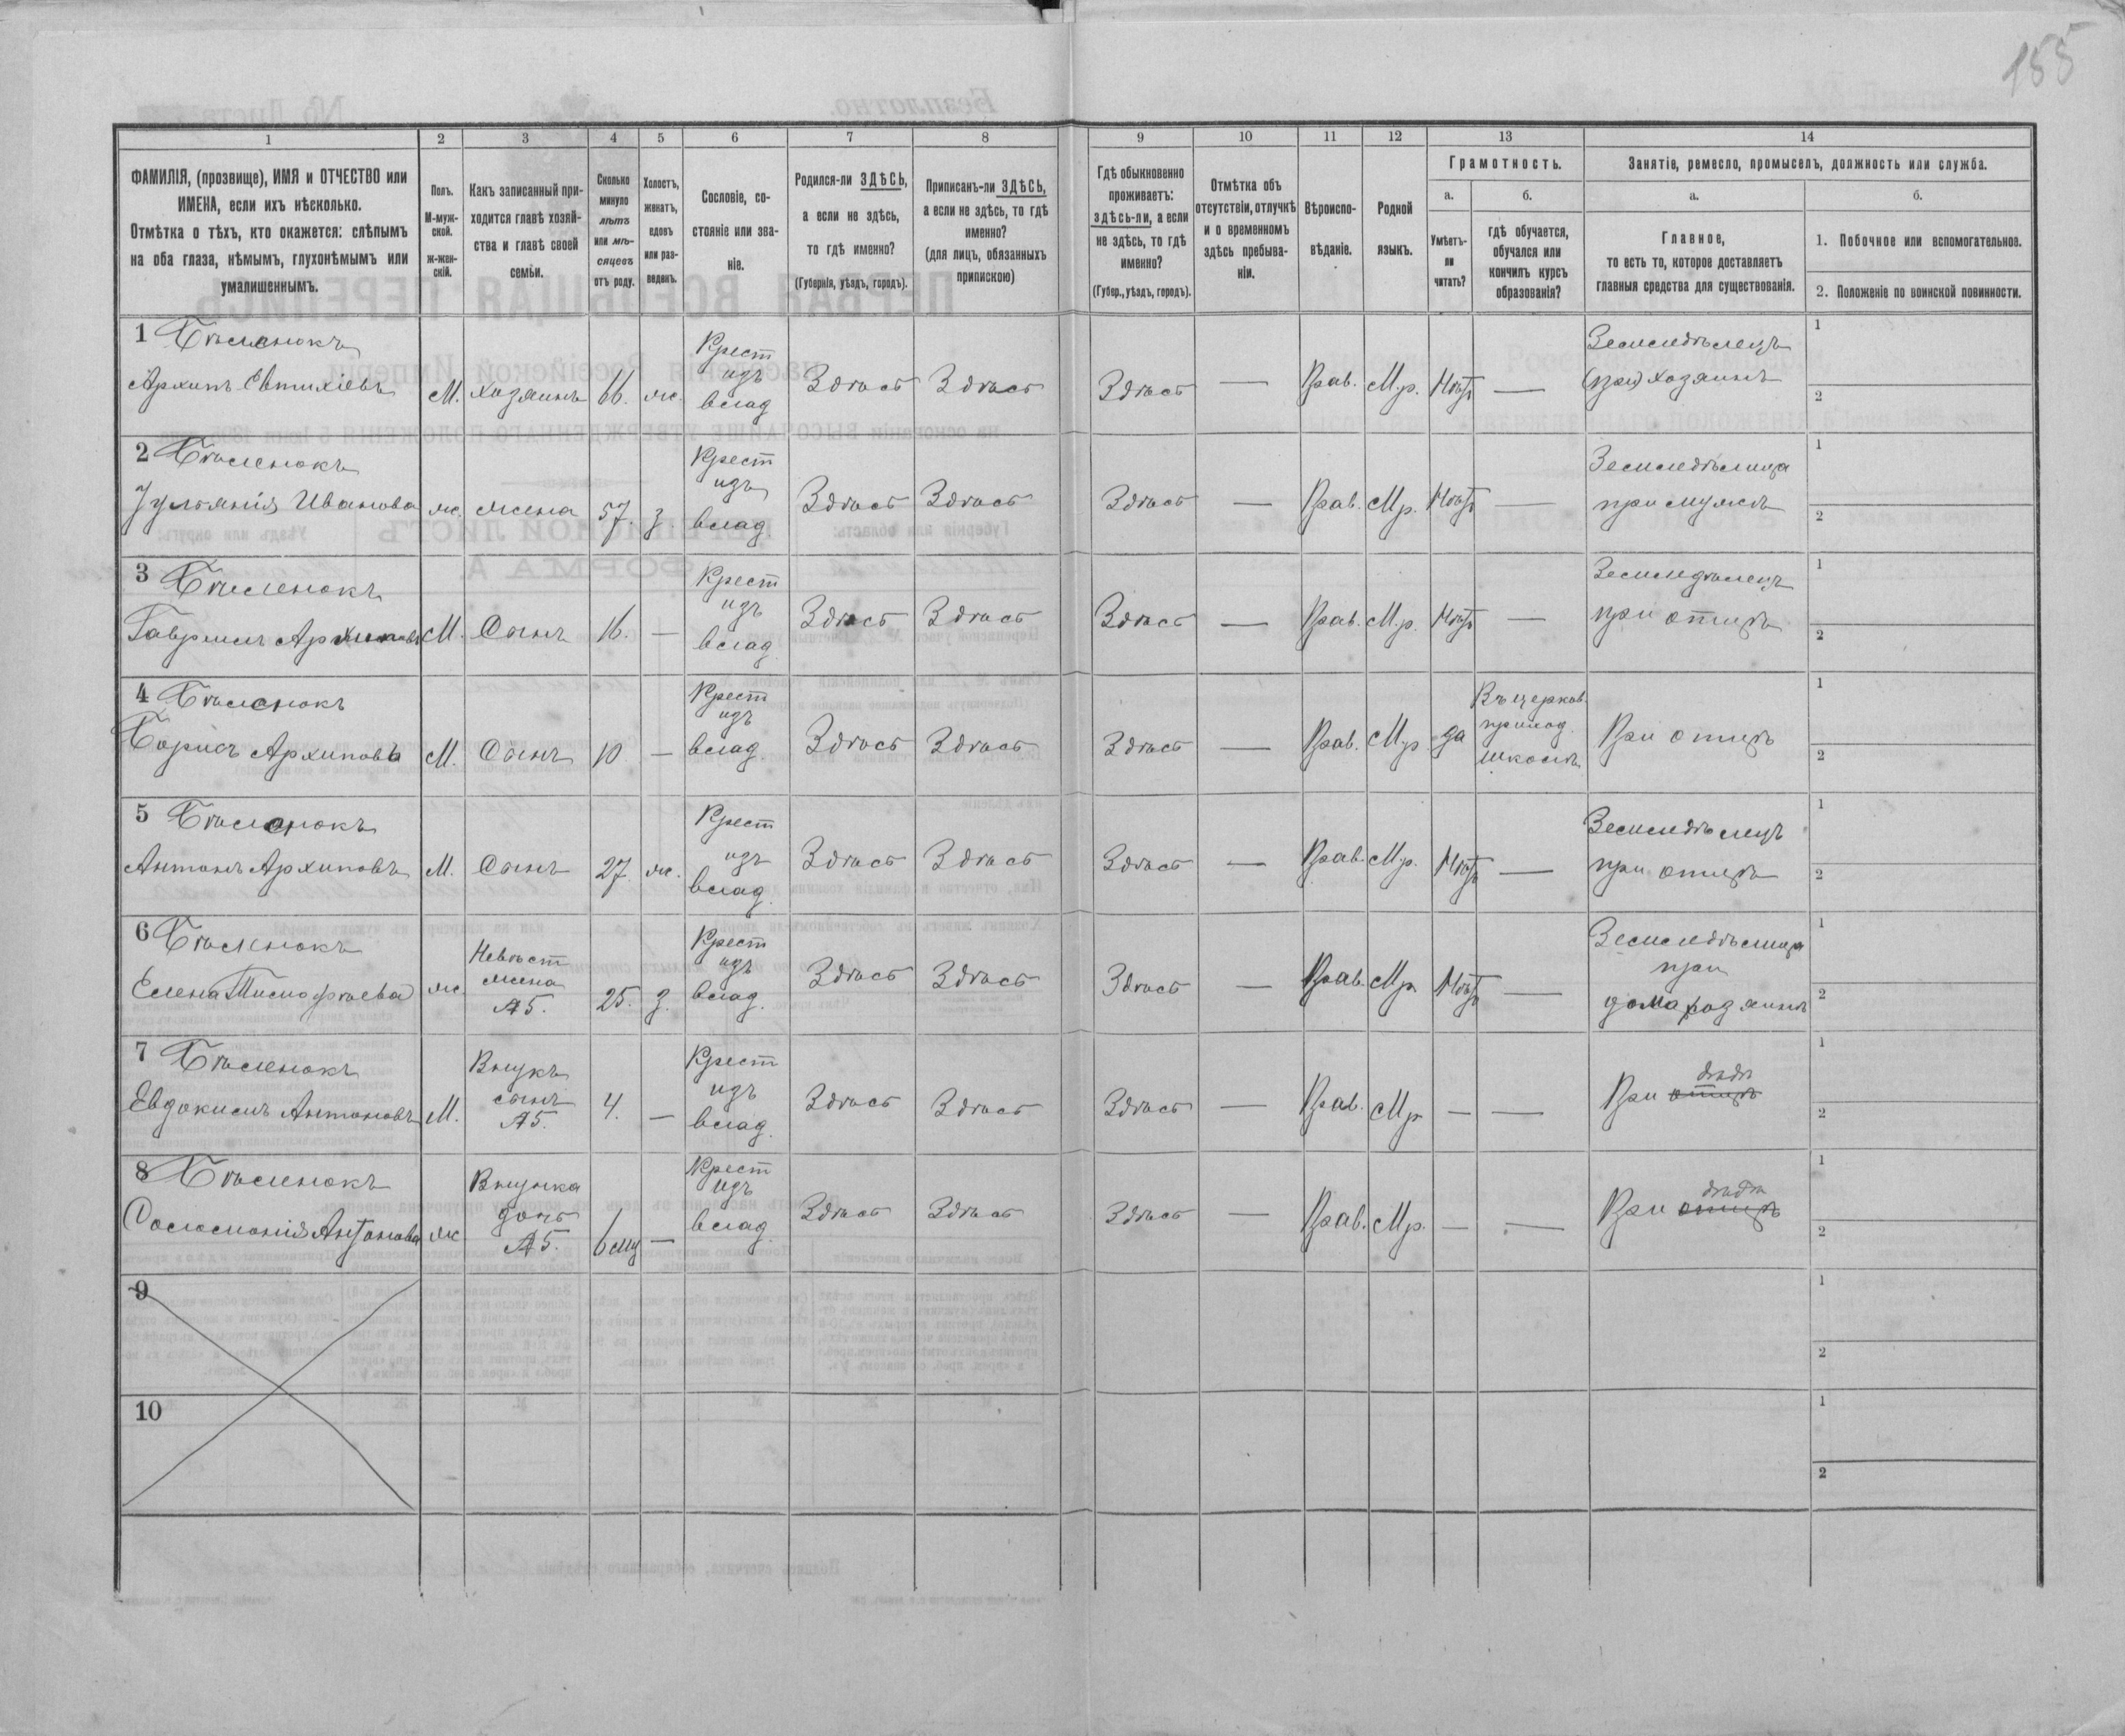 155
1 2 3 4 5 6 7 8 9 10 11 12 13 14
ФАМИЛІЯ, (прозвище), ИМЯ и ОТЧЕСТВО или
ИМЕНА, если ихъ нѣсколько.
Отмѣтка о тѣхъ, кто окажется: слѣпымъ
на оба глаза, нѣмымъ, глухонѣмымъ или
умалишеннымъ.
Полъ.
М-муж-
ской.
ж-жен-
скій.
Какъ записанный при-
ходится главѣ хозяй-
ства и главѣ своей
семьи.
Сколько
минуло
лѣтъ
или мѣ-
сяцевъ
отъ роду.
Холостъ,
женатъ,
вдовъ
или раз-
веденъ.
Сословіе, со-
стояніе или зва-
ніе.
Родился-ли ЗДѢСЬ,
а если не здѣсь,
то гдѣ именно?
(Губернія, уѣздъ, городъ).
Приписанъ-ли ЗДѢСЬ,
а если не здѣсь, то гдѣ
именно?
(для лицъ, обязанныхъ
припискою)
Гдѣ обыкновенно
проживаетъ:
здѣсь-ли, а если
не здѣсь, то гдѣ
именно?
(Губер., уѣздъ, городъ).
Отмѣтка объ
отсутствіи, отлучкѣ
и о временномъ
здѣсь пребыва-
ніи.
Вѣроиспо-
вѣданіе.
Родной
языкъ.
Грамотность.
а.
Умѣетъ-
ли
читать?
б.
гдѣ обучается,
обучался или
кончилъ курсъ
образованія?
Занятіе, ремесло, промыселъ, должность или служба.
а.
Главное,
то есть то, которое доставляетъ
главныя средства для существованія.
б.
1. Побочное или вспомогательное.
2. Положеніе по воинской повинности.
1 Бѣленокъ
Архипъ Евтихіевъ
М.
хозяинъ
66.
ж.
Крест
изъ
влад
Здѣсь
Здѣсь
Здѣсь
—
Прав.
М.р.
Нѣтъ
—
Земледѣлецъ
(при) хозяинъ
1
2
2 Бѣленокъ
Іульянія Иванова
ж.
жена
57.
з.
Крест
изъ
влад
Здѣсь
Здѣсь
Здѣсь
—
Прав.
М.р.
Нѣтъ
—
Земледѣлица
при мужѣ
1
2
3 Бѣленокъ
Гаврилъ Архиповъ
М.
Сынъ
16.
—
Крест
изъ
влад
Здѣсь
Здѣсь
Здѣсь
—
Прав.
М.р.
Нѣтъ
—
Земледѣлецъ
при отцѣ
1
2
4 Бѣленокъ
Борисъ Архиповъ
М.
Сынъ
10
—
Крест
изъ
влад.
Здѣсь
Здѣсь
Здѣсь
—
Прав.
М.р.
да
Въ церков.
приход.
школѣ
При отцѣ
1
2
5 Бѣленокъ
Антонъ Архиповъ
М.
Сынъ
27
ж.
Крест
изъ
влад.
Здѣсь
Здѣсь
Здѣсь
—
Прав.
М.р.
Нѣтъ
—
Земледѣлецъ
при отцѣ
1
2
6 Бѣленокъ
Елена Тимофѣева
ж.
Невѣст
жена
А5.
25.
з.
Крест
изъ
влад.
Здѣсь
Здѣсь
Здѣсь
—
Прав.
М.р.
Нѣтъ
—
Земледѣлица
при
домахозяинѣ
1
2
7 Бѣленокъ
Евдокимъ Антоновъ
М.
Внукъ
сынъ
А5.
4.
—
Крест
изъ
влад.
Здѣсь
Здѣсь
Здѣсь
—
Прав.
М.р
—
—
дѣдѣ
При отцѣ
1
2
8 Бѣленокъ
Соломонія Антонова
ж
Внучка
дочь
А5.
6 мц
—
Крест
изъ
влад.
Здѣсь
Здѣсь
Здѣсь
—
Прав.
М.р.
—
—
дѣдѣ
При отцѣ
1
2
9
1
2
10
1
2